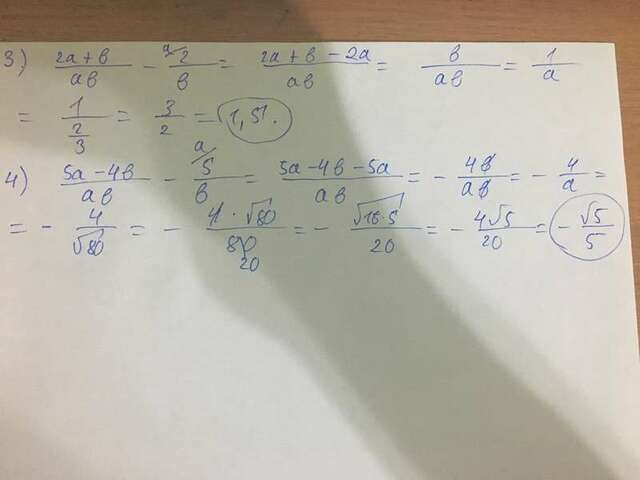 3) (2a+b)/(ab) - ᵃ⁄2/b = (2a+b-2a)/(ab) = b/(ab) = 1/a
= 1/(2/3) = 3/2 = 1,5.
4) (5a-4b)/(ab) - ᵃ⁄5/b = (5a-4b-5a)/(ab) = - 4b/(ab) = - 4/a =
= - 4/√80 = - (4·√80)/80 20 = - √(16·5)/20 = - 4√5/20 = - √5/5